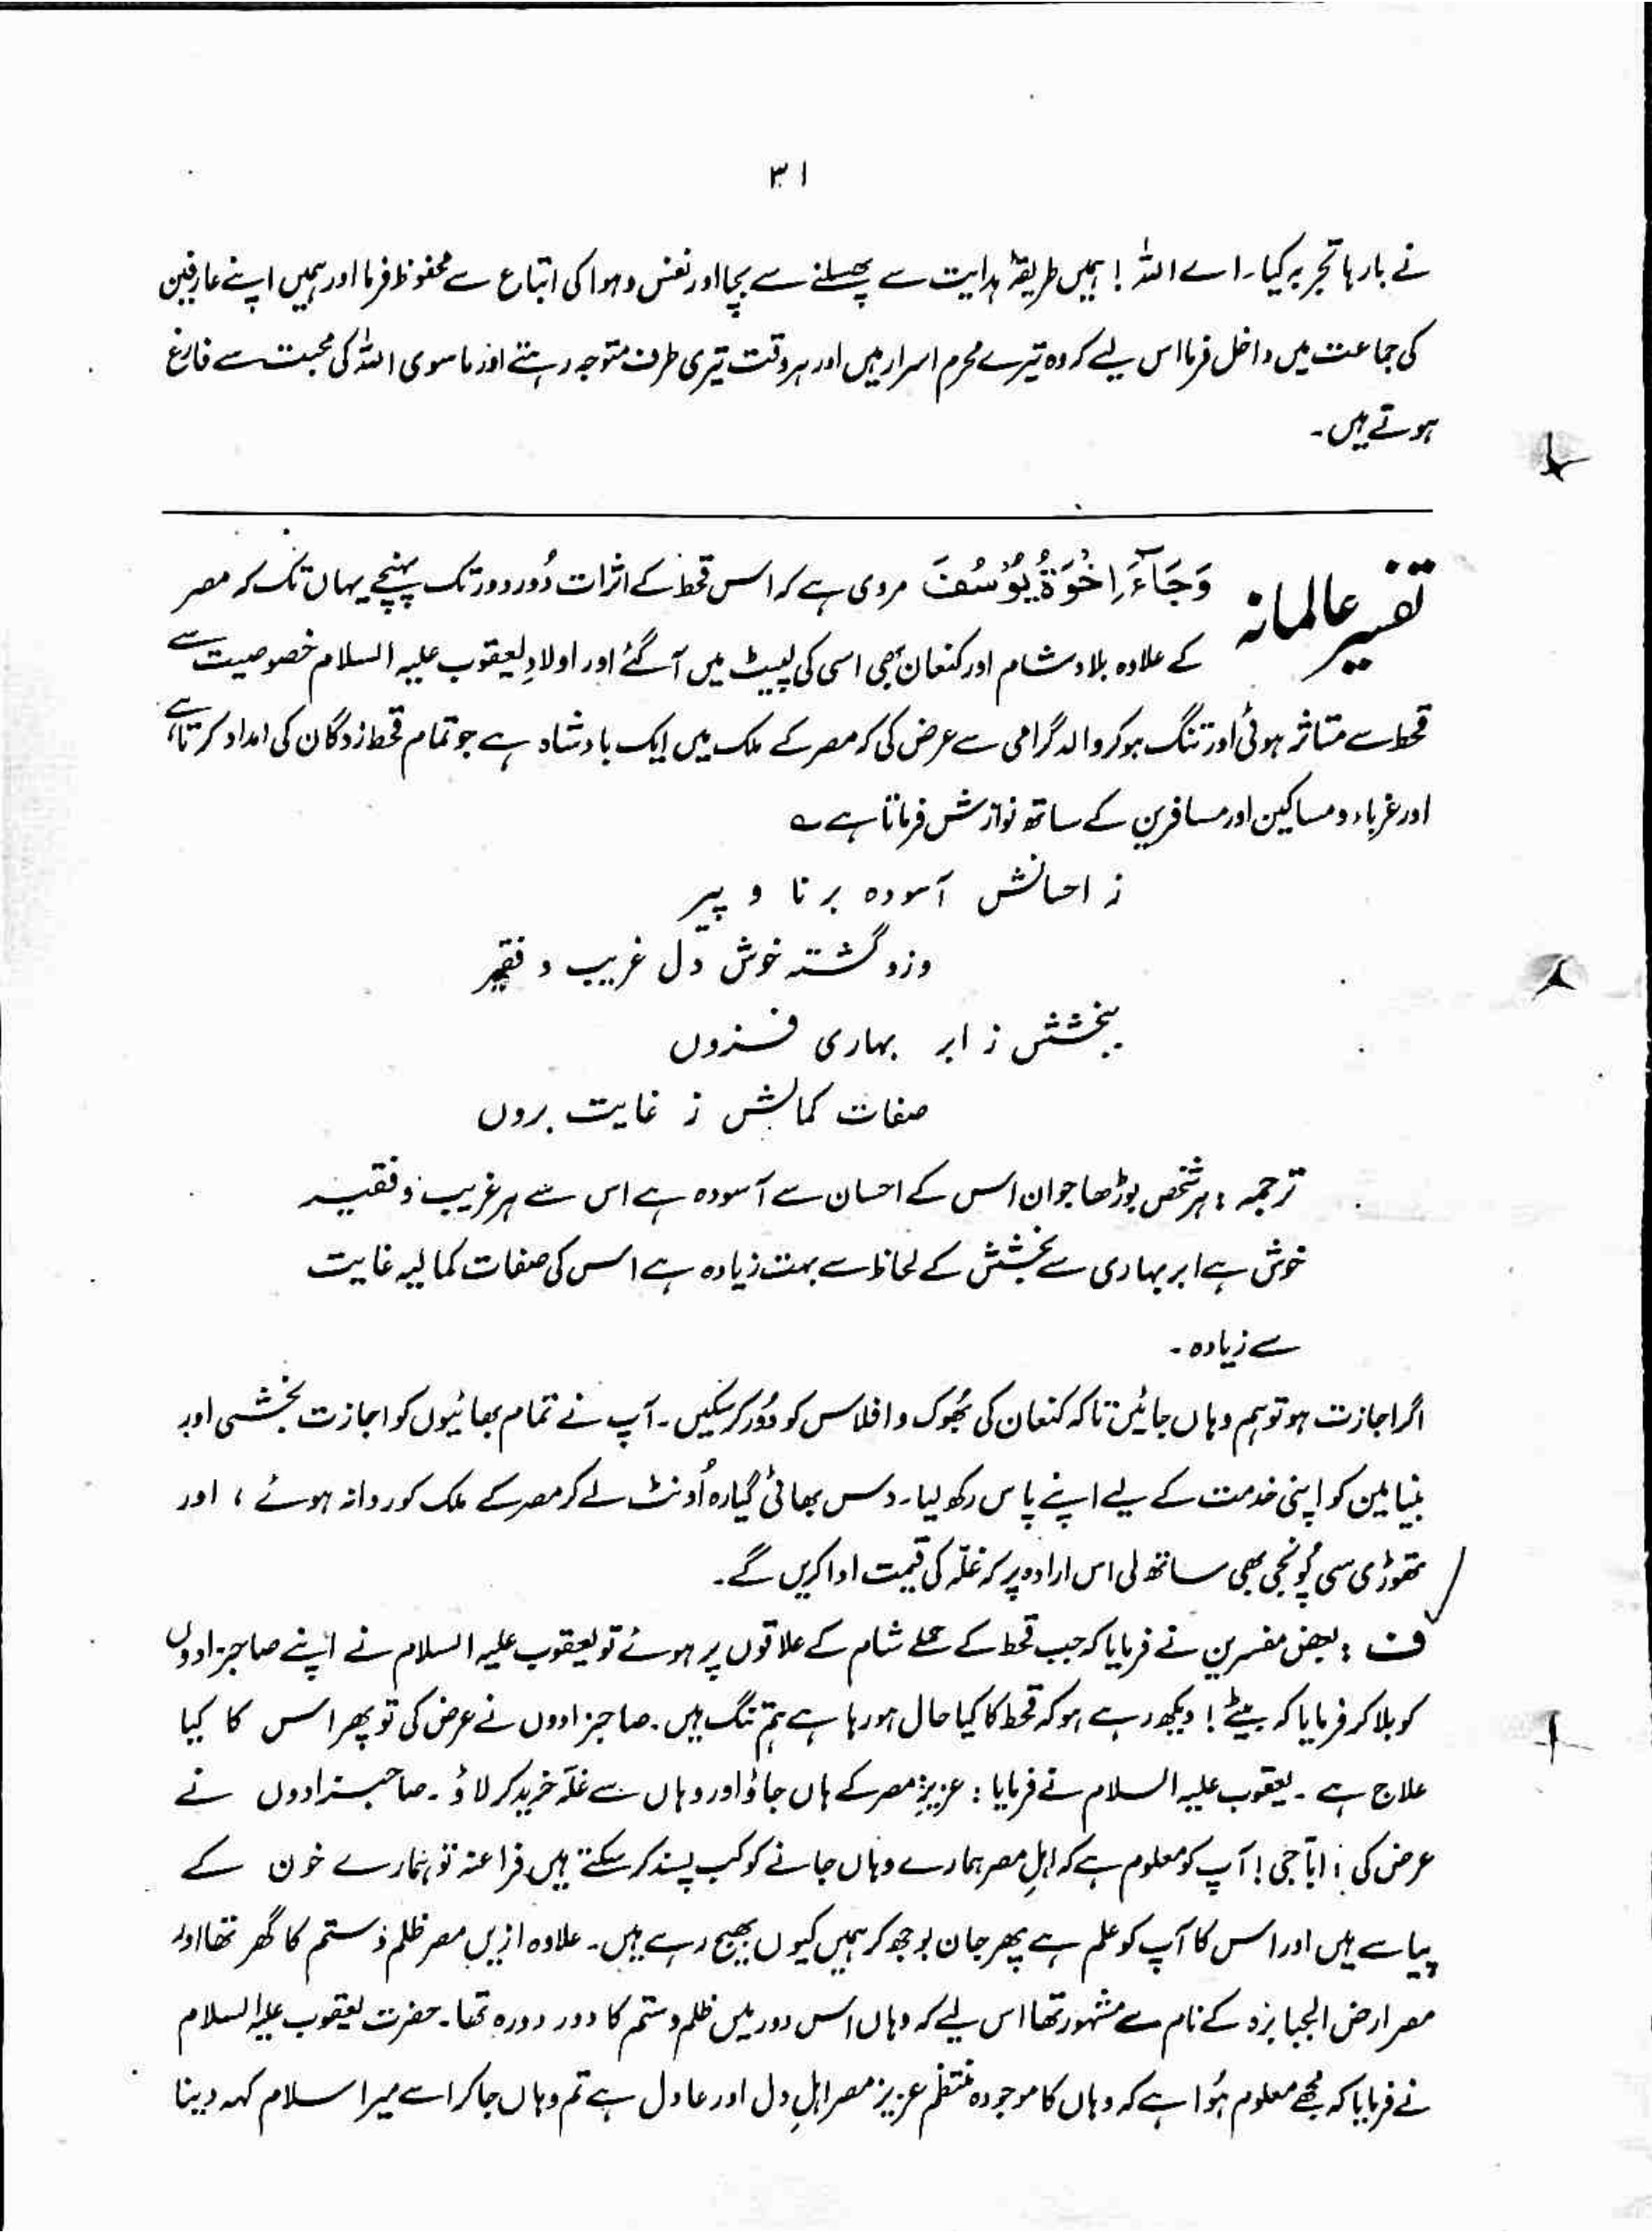 ۳۱
نے بارہا تجربہ کیا۔ اے اللہ! ہمیں طریقۂ ہدایت سے پھسلنے سے بچا اور نفس و ہوا کی اتباع سے محفوظ فرما اور ہمیں اپنے عارفین
کی جماعت میں داخل فرما اس لیے کہ وہ تیرے محرم اسرار ہیں اور ہر وقت تیری طرف متوجہ رہتے اور ماسوی اللہ کی محبت سے فارغ
ہوتے ہیں۔
تفسیر عالمانہ وَجَآءَ اِخْوَۃُ یُوْسُفَ مروی ہے کہ اس قحط کے اثرات دُور دور تک پہنچے یہاں تک کہ مصر
کے علاوہ بلاد شام اور کنعان بھی اسی کی لپیٹ میں آ گئے اور اولادِ یعقوب علیہ السلام خصوصیت سے
قحط سے متاثر ہوئی اور تنگ ہو کر والد گرامی سے عرض کی کہ مصر کے ملک میں ایک بادشاہ ہے جو تمام قحط زدگان کی امداد کرتا ہے
اور غرباء و مساکین اور مسافرین کے ساتھ نوازش فرماتا ہے ؎
ز احسانش آسودہ برنا و پیر
وزو گشتہ خوش دل غریب و فقیر
ببخشش ز ابر بہاری فزوں
صفات کمالش ز غایت بروں
ترجمہ : ہر شخص بوڑھا جوان اس کے احسان سے آسودہ ہے اس سے ہر غریب و فقیر
خوش ہے ابر بہاری سے بخشش کے لحاظ سے بہت زیادہ ہے اس کی صفات کمالیہ غایت
سے زیادہ۔
اگر اجازت ہو تو ہم وہاں جائیں تاکہ کنعان کی بھُوک و افلاس کو دُور کر سکیں۔ آپ نے تمام بھائیوں کو اجازت بخشی اور
بنیامین کو اپنی خدمت کے لیے اپنے پاس رکھ لیا۔ دس بھائی گیارہ اُونٹ لے کر مصر کے ملک کو روانہ ہوئے ، اور
تھوڑی سی پُونجی بھی ساتھ لی اس ارادہ پر کہ غلّہ کی قیمت ادا کریں گے۔
ف : بعض مفسرین نے فرمایا کہ جب قحط کے حملے شام کے علاقوں پر ہوئے تو یعقوب علیہ السلام نے اپنے صاجزادوں
کو بلا کر فرمایا کہ بیٹے! دیکھ رہے ہو کہ قحط کا کیا حال ہو رہا ہے ہم تنگ ہیں۔ صاجزادوں نے عرض کی تو پھر اس کا کیا
علاج ہے ۔ یعقوب علیہ السلام نے فرمایا : عزیزِ مصر کے ہاں جاؤ اور وہاں سے غلّہ خرید کر لاؤ ۔ صاحبزادوں نے
عرض کی : اباّ جی! آپ کو معلوم ہے کہ اہلِ مصر ہمارے وہاں جانے کو کب پسند کر سکتے ہیں فراعنہ تو ہمارے خون کے
پیاسے ہیں اور اس کا آپ کو علم ہے پھر جان بوجھ کر ہمیں کیوں بھیج رہے ہیں۔ علاوہ ازیں مصر ظلم و ستم کا گھر تھا اور
مصر ارض الجبابرہ کے نام سے مشہور تھا اس لیے کہ وہاں اس دور میں ظلم و ستم کا دور دورہ تھا۔ حضرت یعقوب علیہ السلام
نے فرمایا کہ مجھے معلوم ہُوا ہے کہ وہاں کا موجودہ منتظم عزیز مصر اہلِ دل اور عادل ہے تم وہاں جا کر اسے میرا سلام کہہ دینا